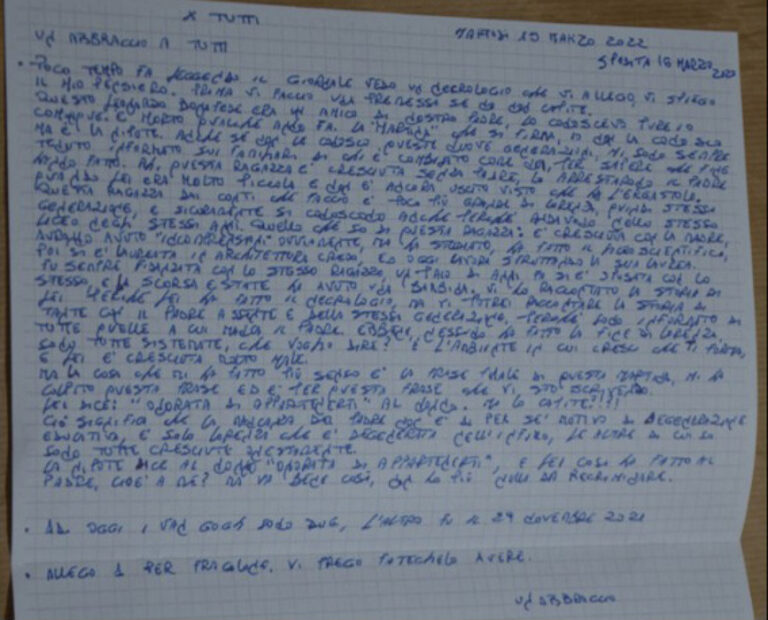 X TUTTI
MARTEDI 15 MARZO 2022
UN ABBRACCIO A TUTTI
SPEDITA 16 MARZO
• POCO TEMPO FA LEGGENDO IL GIORNALE VEDO UN NECROLOGIO CHE VI ALLEGO, VI SPIEGO
IL MIO PENSIERO. PRIMA VI FACCIO UNA PREMESSA SE NO NON CAPITE.
QUESTO LEONARDO BONAFEDE ERA UN AMICO DI NOSTRO PADRE, LO CONOSCEVO PURE IO
COMUNQUE. È MORTO QUALCHE ANNO FA. LA "MARTINA" CHE SI FIRMA, IO NON LA CONOSCO
MA È LA NIPOTE. ANCHE SE NON LE CONOSCO, QUESTE NUOVE GENERAZIONI, MI SONO SEMPRE
TENUTO INFORMATO SUI FAMILIARI DI CHI È COMBINATO COME NOI, PER SAPERE CHE FINE
HANNO FATTO. QUESTA RAGAZZA È CRESCIUTA SENZA PADRE, LO ARRESTARONO IL PADRE
QUANDO LEI ERA MOLTO PICCOLA E NON È ANCORA USCITO VISTO CHE HA L'ERGASTOLO.
QUESTA RAGAZZA DAI CONTI CHE FACCIO È POCO PIÙ GRANDE DI LORENZA, QUINDI STESSA
GENERAZIONE, E SICURAMENTE SI CONOSCONO ANCHE PERCHÉ ANDAVANO NELLO STESSO
LICEO NEGLI STESSI ANNI. QUELLO CHE SO DI QUESTA RAGAZZA: È CRESCIUTA CON LA MADRE,
AVRANNO AVUTO "INCOMPRENSIONI" OVVIAMENTE, MA HA STUDIATO, HA FATTO IL LICEO SCIENTIFICO,
POI SI È LAUREATA IN ARCHITETTURA CREDO, ED OGGI LAVORA SFRUTTANDO LA SUA LAUREA.
FU SEMPRE FIDANZATA CON LO STESSO RAGAZZO, UN PAIO DI ANNI FA SI È SPOSATA CON LO
STESSO, E LA SCORSA ESTATE HA AVUTO UNA BAMBINA. VI HO RACCONTATO LA STORIA DI
LEI PERCHÉ LEI HA FATTO IL NECROLOGIO, MA VI POTREI RACCONTARE LA STORIA DI
TANTE CON IL PADRE ASSENTE E DELLA STESSA GENERAZIONE, PERCHÉ SONO INFORMATO DI
TUTTE QUELLE A CUI MANCA IL PADRE. EBBENE, NESSUNA HA FATTO LA FINE DI LORENZA,
SONO TUTTE SISTEMATE, CHE VOGLIO DIRE? È L'AMBIENTE IN CUI CRESCI CHE TI FORMA,
E LEI È CRESCIUTA MOLTO MALE.
MA LA COSA CHE MI HA FATTO PIÙ SENSO È LA FRASE FINALE DI QUESTA MARTINA, MI HA
COLPITO QUESTA FRASE ED È PER QUESTA FRASE CHE VI STO SCRIVENDO.
LEI DICE: "ONORATA DI APPARTENERTI" AL NONNO. MA LO CAPITE?!!!
CIÒ SIGNIFICA CHE LA MANCANZA DEL PADRE NON È DI PER SÉ MOTIVO DI DEGENERAZIONE
EDUCATIVA, È SOLO LORENZA CHE È DEGENERATA NELL'INFIMO, LE ALTRE DI CUI SO
SONO TUTTE CRESCIUTE ONESTAMENTE.
LA NIPOTE DICE AL NONNO "ONORATA DI APPARTENERTI", E LEI COSA HA FATTO AL
PADRE, CIOÈ A ME? MA VA BENE COSÌ, NON HO PIÙ NULLA DA RECRIMINARE.
• AD OGGI I VAN GOGH SONO DUE, L'ALTRO FU IL 29 NOVEMBRE 2021
• ALLEGO 1 PER FRAGOLONE, VI PREGO FATECHELO AVERE.
UN ABBRACCIO